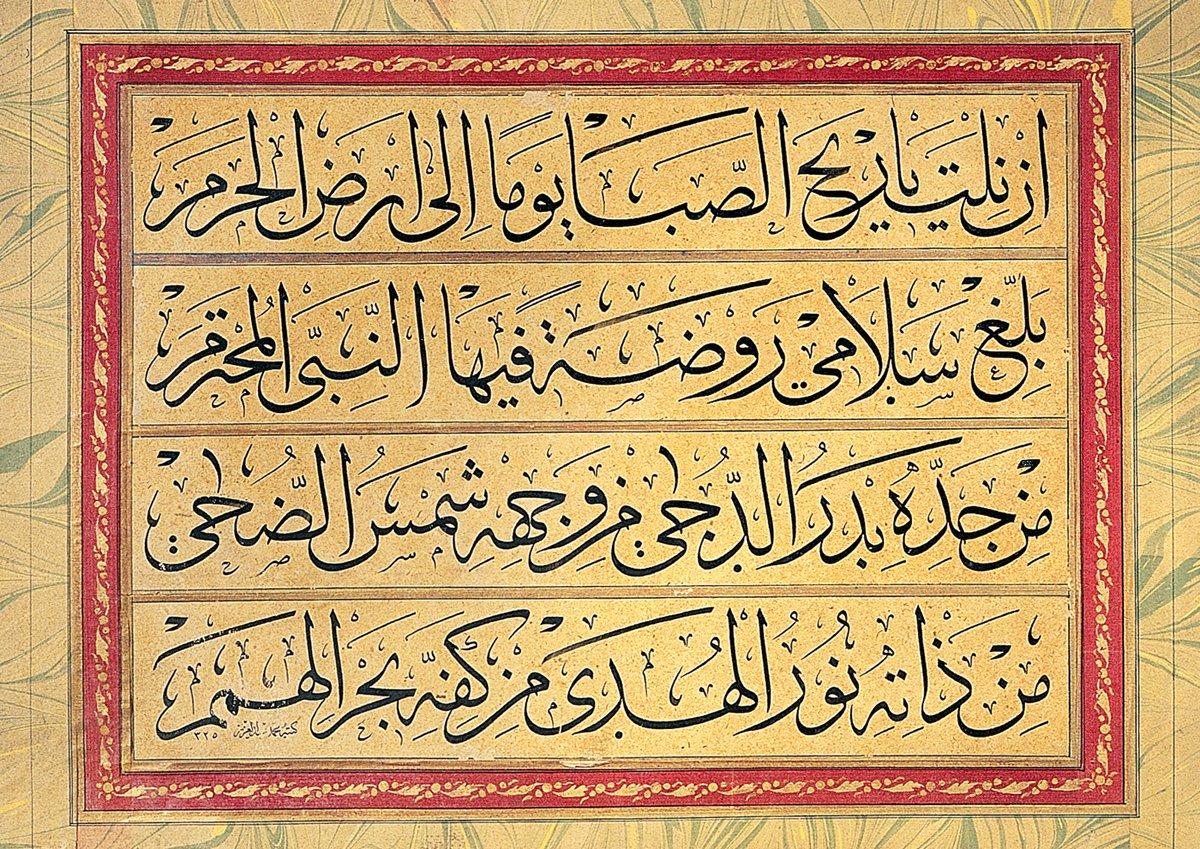 ان نلت يا ريح الصبا يوما الى ارض الحرم
بلغ سلامي روضة فيها النبي المحترم
من خده بدر الدجي من وجهه شمس الضحي
من ذاته نور الهدى من كفه بحر الهمم
كتبه محمد ٣٢٥